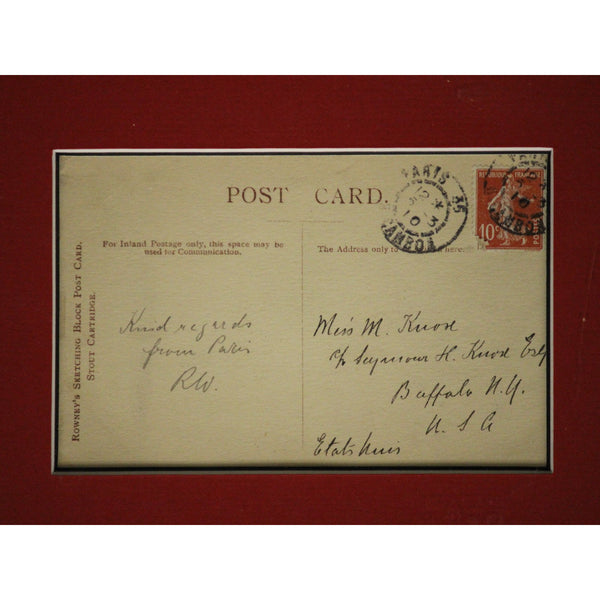 POST CARD.
For Inland Postage only, this space may be
used for Communication.
The Address only to
here.
ROWNEY'S SKETCHING BLOCK POST CARD.
STOUT CARTRIDGE.
Kind regards
from Paris
RW.
Miss M. Knox
c/o Seymour H. Knox Esq
Buffalo N.Y.
U.S.A
Etats Unis
PARIS 36
CAMBON
10
REPUBLIQUE FRANÇAISE
10
POSTES